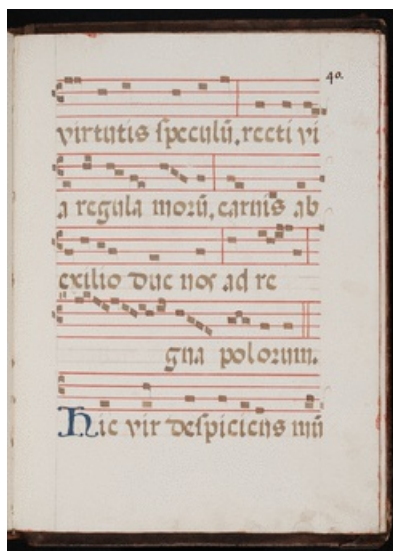 40.
virtutis speculū. recti vi
a regula morū. carnis ab
exilio duc nos ad re
gna polorum.
Hic vir despiciens mū